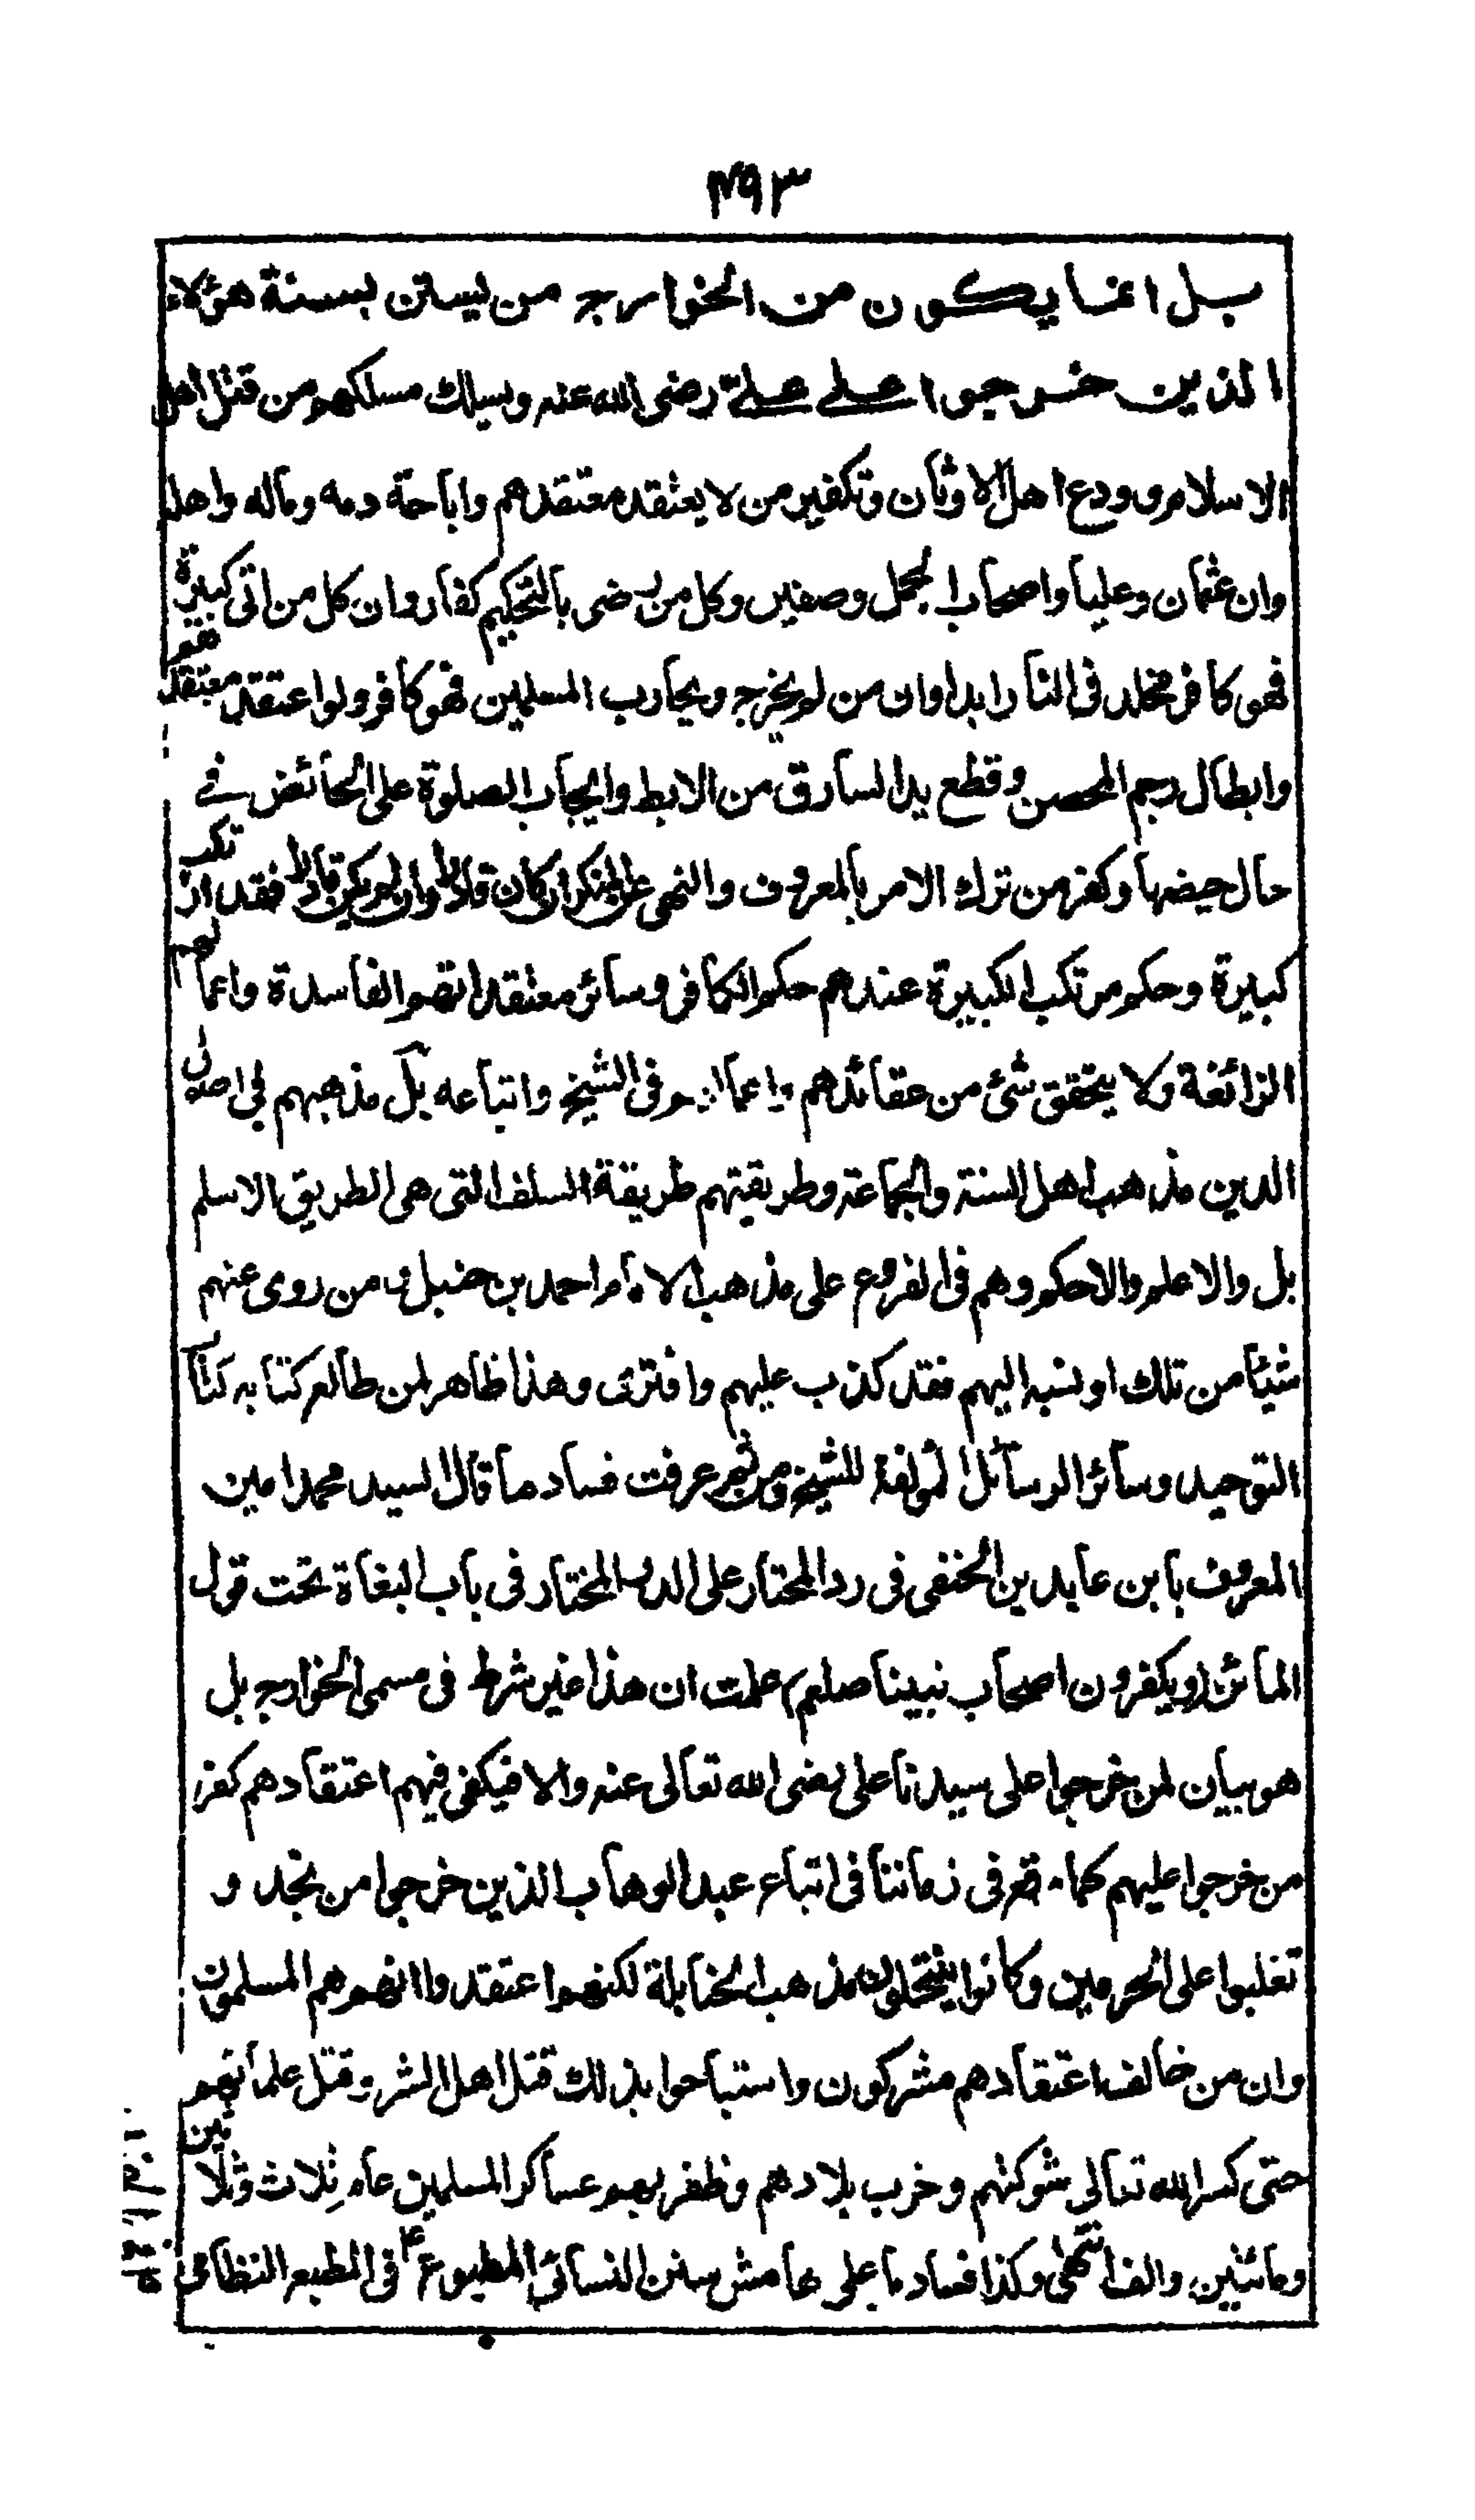 ٤٩٣
بل انما يكون من الخوارج من يستن بسنة هؤلاء
الذين خرجوا على علي رضى الله عنه وسلك مسلكهم من قتل اهل
الاسلام وودع اهل الاوثان وتكفير من لا يعتقد معتقدهم واباحة دمه وماله واهله
وان عثمان وعليا واصحاب الجمل وصفين وكل من رضى بالتحكيم كفار وان كل من اتى كبيرة
فهو كافر مخلد فى النار ابدا وان من لم يخرج ويحارب المسلمين فهو كافر ولو اعتقد معتقدهم
وابطال رجم المحصن وقطع يد السارق من الابط وايجاب الصلوة على الحائض فے
حال حيضها وكفر من ترك الامر بالمعروف والنهى عن المنكر ان كان قادرا وان لم يكن قادرا فقد ارتكب
كبيرة وحكم مرتكب الكبيرة عندهم حكم الكافر وسائر معتقداتهم الفاسدة واعمالهم
الزائغة ولا يتحقق شئ من عقائدهم واعمالهم فى الشيخ واتباعه بل مذهبهم فى اصول
الدين مذهب اهل السنة والجماعة وطريقتهم طريقة السلف التى هى الطريق الاسلم
بل والاعلم والاحكم وهم فى الفروع على مذهب الامام احمد بن حنبل من روى عنهم
شيئا من تلك او نسبه اليهم فقد كذب عليهم وافترى وهذا ظاهر لمن طالع كتابه كتاب
التوحيد وسائر الرسائل المولفة للشيخ ومن ثم عرفت فساد ما قال السيد محمد امين
المعروف بابن عابدين الحنفى فى رد المحتار على الدر المختار فى باب البغاة تحت قول
الماتن (ويكفرون اصحاب نبينا صلعم) علمت ان هذا غير شرط فى مسمى الخوارج بل
هو بيان لمن خرجوا على سيدنا على رضى الله تعالى عنه والا فيكفى فيهم اعتقادهم كفر
من خرجوا عليهم كما وقع فى زماننا فى اتباع عبد الوهاب الذين خرجوا من نجد و
تغلبوا على الحرمين وكانوا ينتحلون مذهب الحنابلة لكنهم اعتقدوا انهم هم المسلمون
وان من خالف اعتقادهم مشركون واستباحوا بذلك قتل اهل الشر وقتل علمائهم
حتى كسر الله تعالى شوكتهم وخرب بلادهم وظفر بهم عساكر المسلمين عام ثلاث وثلاثين
ومائتين والف انتهى وكذا فساد ما على هامش سنن النسائى المطبوعة فى المطبع النظامى